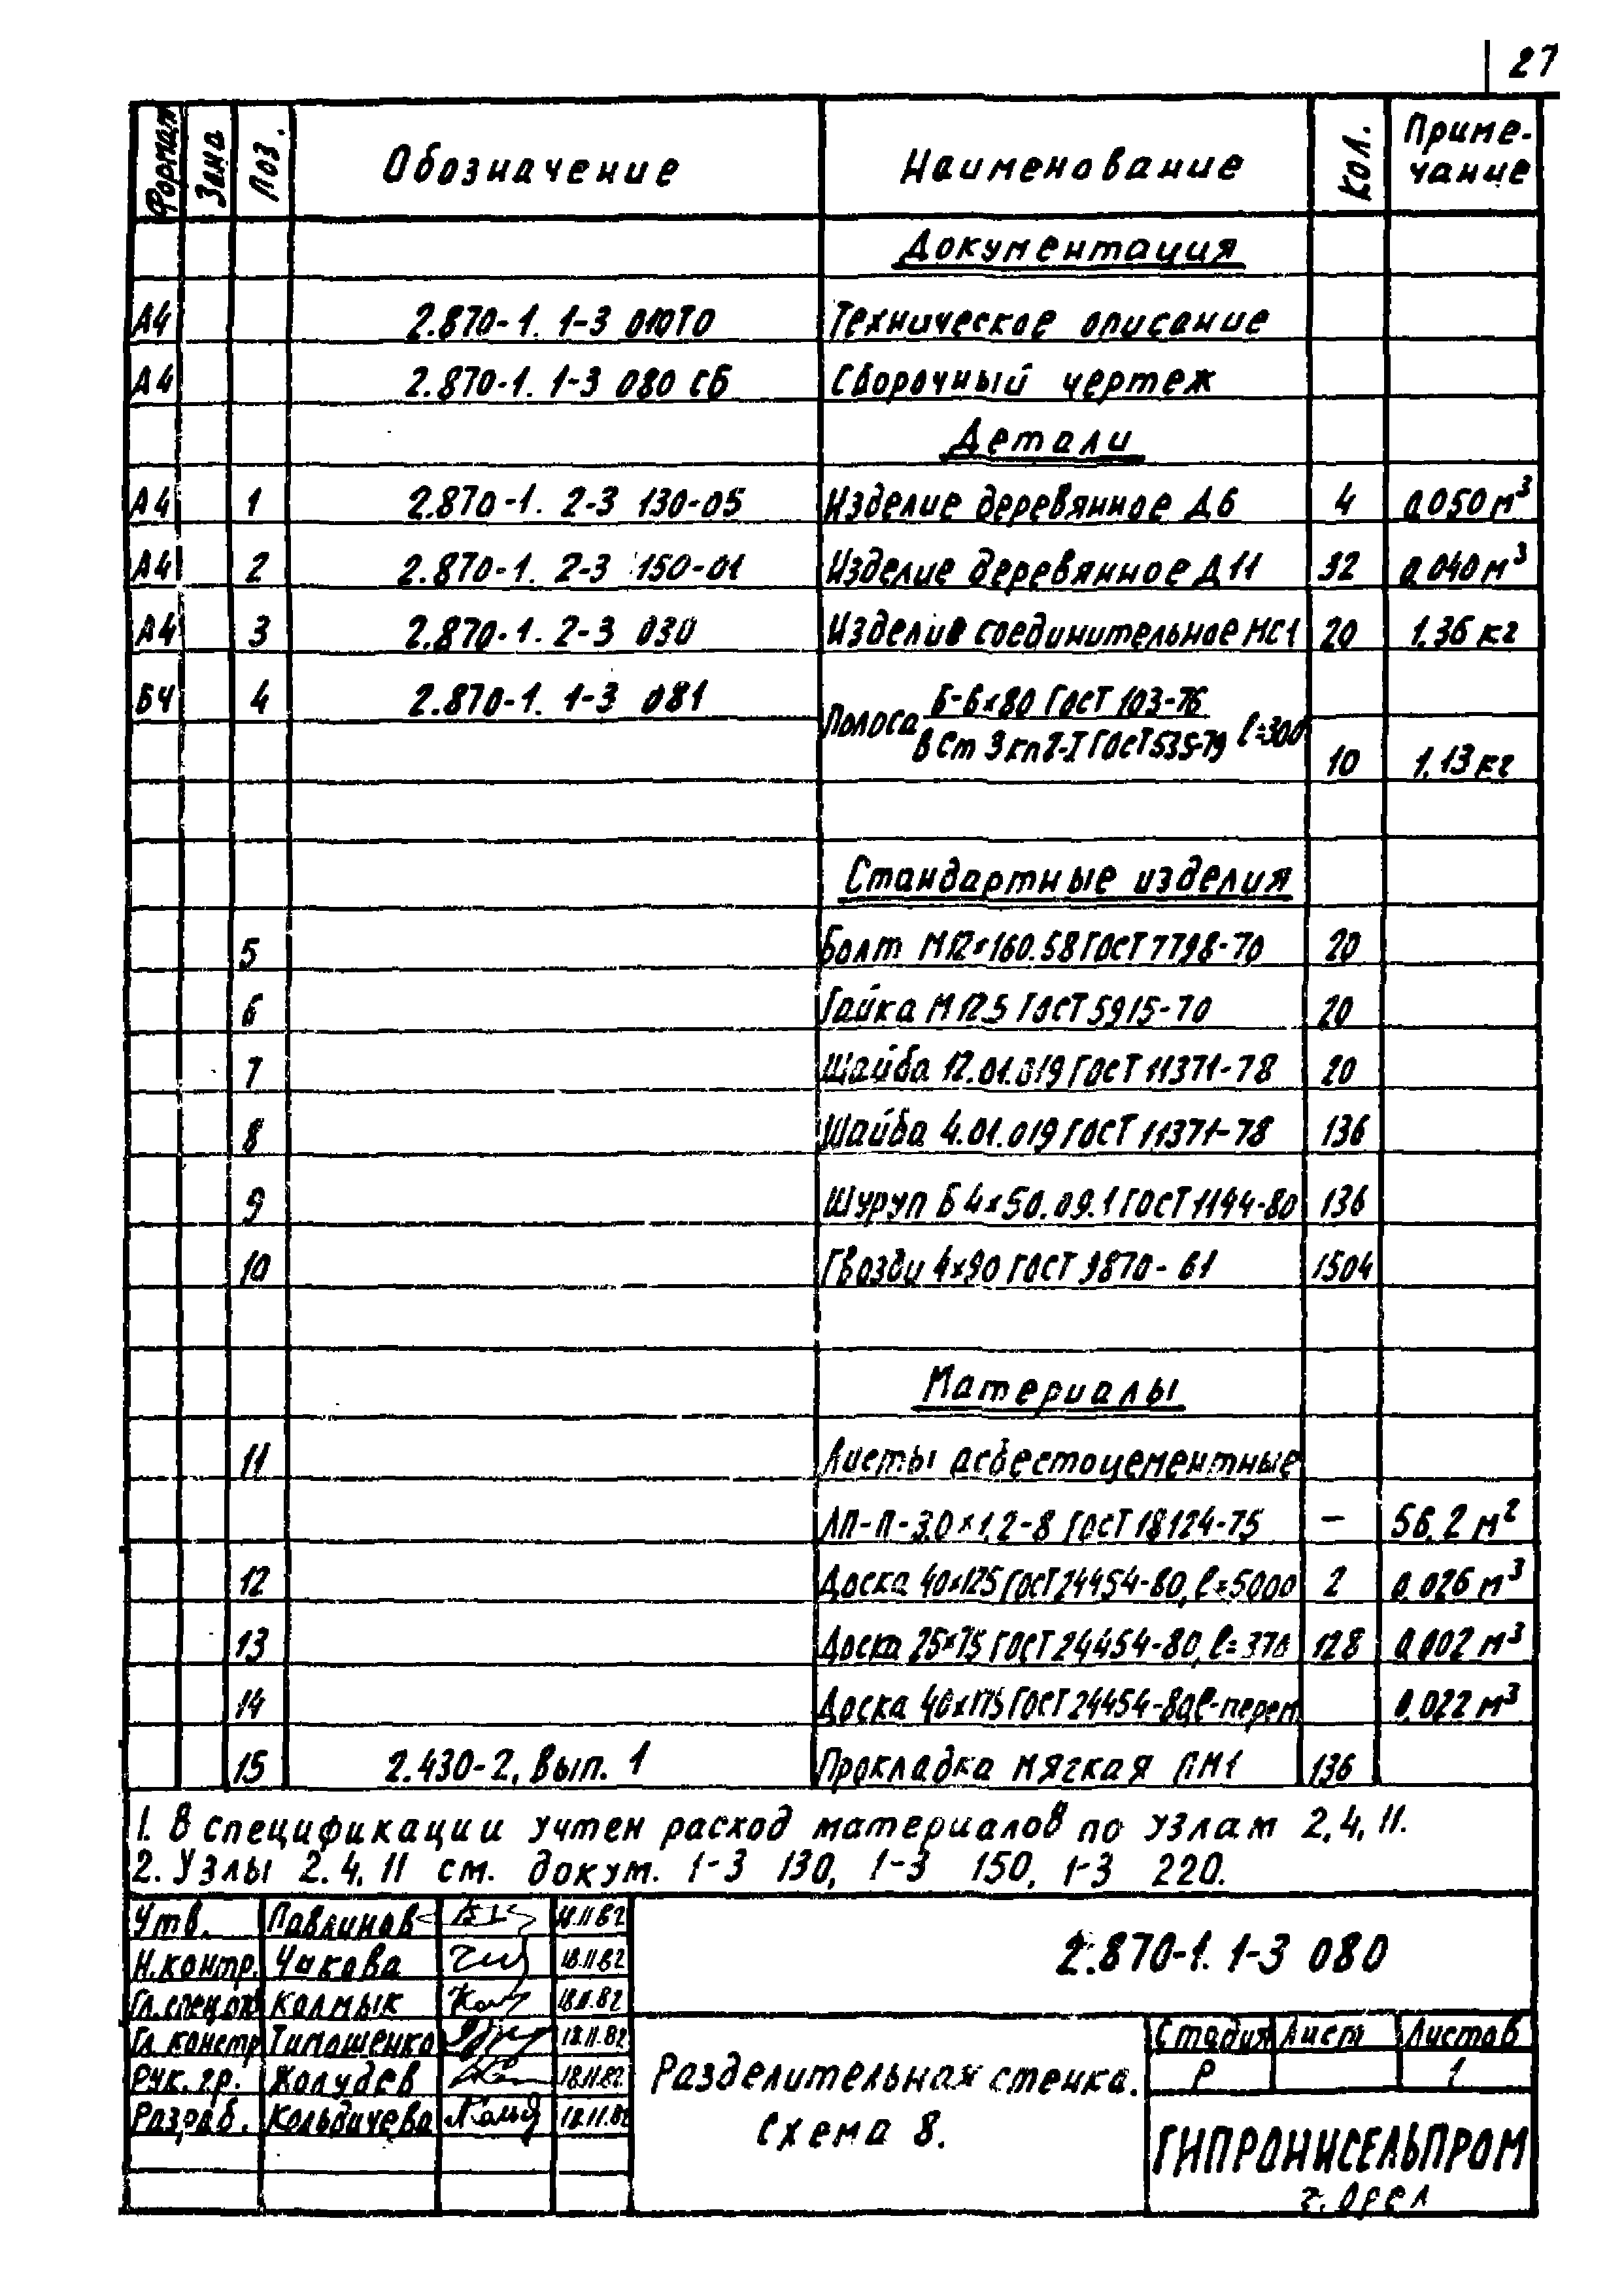 27
Формат Зона Поз. Обозначение Наименование Кол. Приме-
чание
Документация
А4 2.870-1. 1-3 010ТО Техническое описание
А4 2.870-1. 1-3 080 СБ Сборочный чертеж
Детали
А4 1 2.870-1. 2-3 130-05 Изделие деревянное Д6 4 0,050 м³
А4 2 2.870-1. 2-3 150-01 Изделие деревянное Д11 32 0,040 м³
А4 3 2.870-1. 2-3 030 Изделие соединительное МС1 20 1.36 кг
БЧ 4 2.870-1. 1-3 081 Полоса Б-6×80 ГОСТ 103-76
В Ст 3 кп2-I ГОСТ 535-79 ℓ=300 10 1.13 кг
Стандартные изделия
5 Болт М12×160.58 ГОСТ 7798-70 20
6 Гайка М12.5 ГОСТ 5915-70 20
7 Шайба 12.01.019 ГОСТ 11371-78 20
8 Шайба 4.01.019 ГОСТ 11371-78 136
9 Шуруп Б 4×50.09.1 ГОСТ 1144-80 136
10 Гвозди 4×90 ГОСТ 9870-61 1504
Материалы
11 Листы асбестоцементные
ЛП-П-3,0×1,2-8 ГОСТ 18124-75 — 56,2 м²
12 Доска 40×125 ГОСТ 24454-80, ℓ=5000 2 0,026 м³
13 Доска 25×75 ГОСТ 24454-80, ℓ= 128 0,002 м³
14 Доска 40×175 ГОСТ 24454-80, ℓ-перем 0,022 м³
15 2.430-2, Вып. 1 Прокладка мягкая ПМ1 136
1. В спецификации учтен расход материалов по узлам 2, 4, 11.
2. Узлы 2. 4. 11 см. докум. 1-3 130, 1-3 150, 1-3 220.
Утв. Павлинов 18.11.82
Н.контр. Чакова 18.11.82
Гл.спец.от Калмык 18.11.82
Гл. констр Тимашенко 18.11.82
Рук. гр. Жолудев 18.11.82
Разраб. Кольдичева 18.11.82
2.870-1. 1-3 080
Разделительная стенка.
Схема 8.
Стадия Лист Листов
Р 1
ГИПРОНИСЕЛЬПРОМ
г. Орел